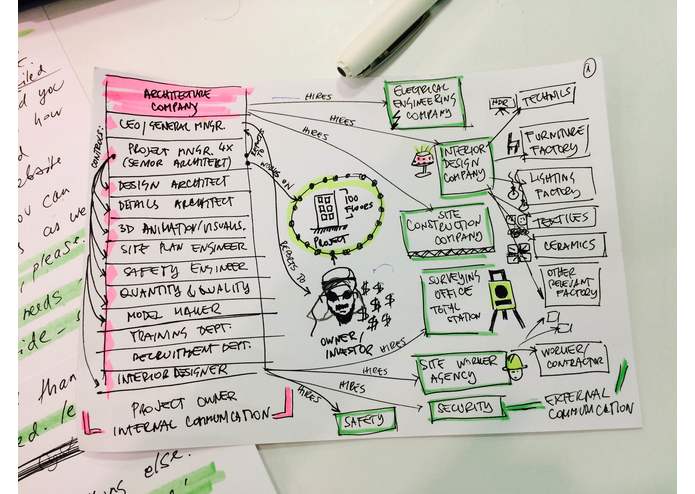 ailed
d you
how
website
you can
s as we
please.
needs
ide - s
than
ed. le
ns else.
1
ARCHITECTURE
COMPANY
CEO/GENERAL MNGR.
PROJECT MNGR. 4X
(SENIOR ARCHITECT)
DESIGN ARCHITECT
DETAILS ARCHITECT
3D ANIMATION/VISUALS.
SITE PLAN ENGINEER
SAFETY ENGINEER
QUANTITY & QUALITY
MODEL MAKER
TRAINING DEPT.
RECRUITMENT DEPT.
INTERIOR DESIGNER
PROJECT OWNER
INTERNAL COMMUNICATION
CONTROLS:
REPORTS TO
WORKS ON
REPORTS TO
HIRES
HIRES
HIRES
HIRES
HIRES
HIRES
HIRES
100
FLOORS
PROJECT
$$$
$$$
$
OWNER/
INVESTOR
ELECTRICAL
ENGINEERING
COMPANY
INTERIOR
DESIGN
COMPANY
SITE
CONSTRUCTION
COMPANY
SURVEYING
OFFICE
TOTAL
STATION
SITE WORKER
AGENCY
SECURITY
SAFETY
TECHNICS
FURNITURE
FACTORY
LIGHTING
FACTORY
TEXTILES
CERAMICS
OTHER
RELEVANT
FACTORY
WORKER/
CONTRACTOR
EXTERNAL
COMMUNICATION